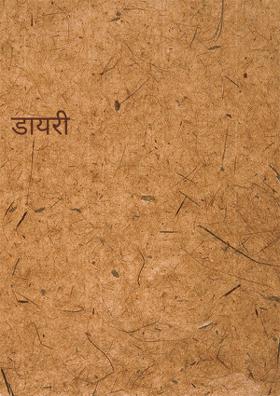 डायरी